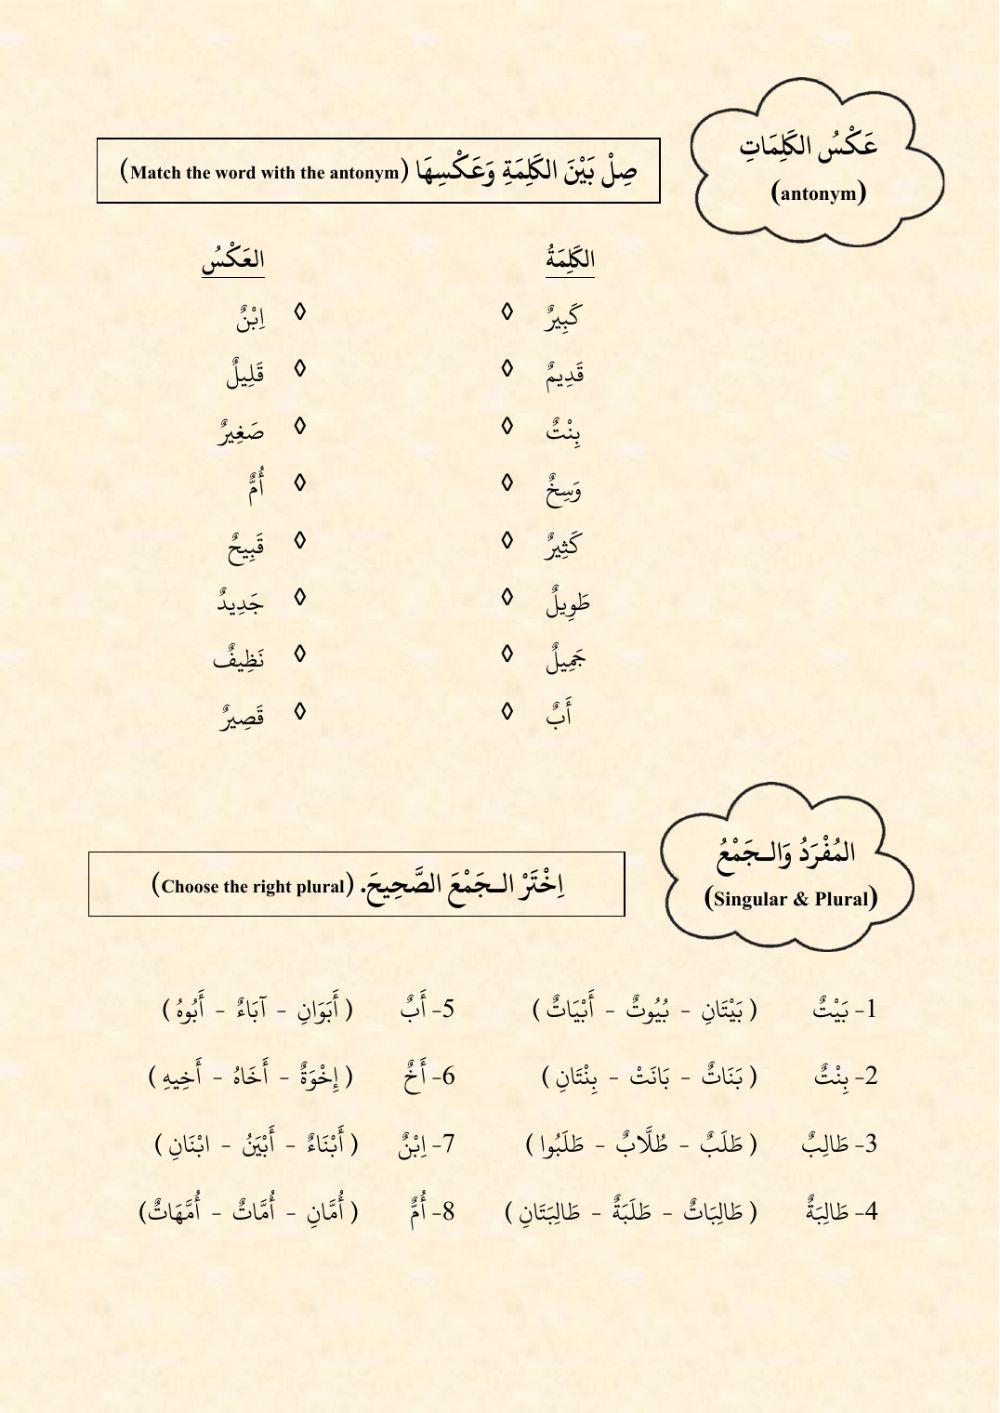 عَكْسُ الكَلِمَاتِ
(antonym)
صِلْ بَيْنَ الكَلِمَةِ وَعَكْسِهَا (Match the word with the antonym)
الكَلِمَةُ العَكْسُ
كَبِيرٌ ◊ ◊ اِبْنٌ
قَدِيمٌ ◊ ◊ قَلِيلٌ
بِنْتٌ ◊ ◊ صَغِيرٌ
وَسِخٌ ◊ ◊ أُمٌّ
كَثِيرٌ ◊ ◊ قَبِيحٌ
طَوِيلٌ ◊ ◊ جَدِيدٌ
جَمِيلٌ ◊ ◊ نَظِيفٌ
أَبٌ ◊ ◊ قَصِيرٌ
المُفْرَدُ وَالـجَمْعُ
(Singular & Plural)
اِخْتَرْ الـجَمْعَ الصَّحِيحَ. (Choose the right plural)
1- بَيْتٌ ( بَيْتَانِ - بُيُوتٌ - أَبْيَاتٌ ) 5- أَبٌ ( أَبَوَانِ - آبَاءٌ - أَبُوهُ )
2- بِنْتٌ ( بَنَاتٌ - بَانَتْ - بِنْتَانِ ) 6- أَخٌ ( إِخْوَةٌ - أَخَاهُ - أَخِيهِ )
3- طَالِبٌ ( طَلَبٌ - طُلَّابٌ - طَلَبُوا ) 7- اِبْنٌ ( أَبْنَاءٌ - أَبْيَنُ - ابْنَانِ )
4- طَالِبَةٌ ( طَالِبَاتٌ - طَلَبَةٌ - طَالِبَتَانِ ) 8- أُمٌّ ( أُمَّانِ - أُمَّاتٌ - أُمَّهَاتٌ)